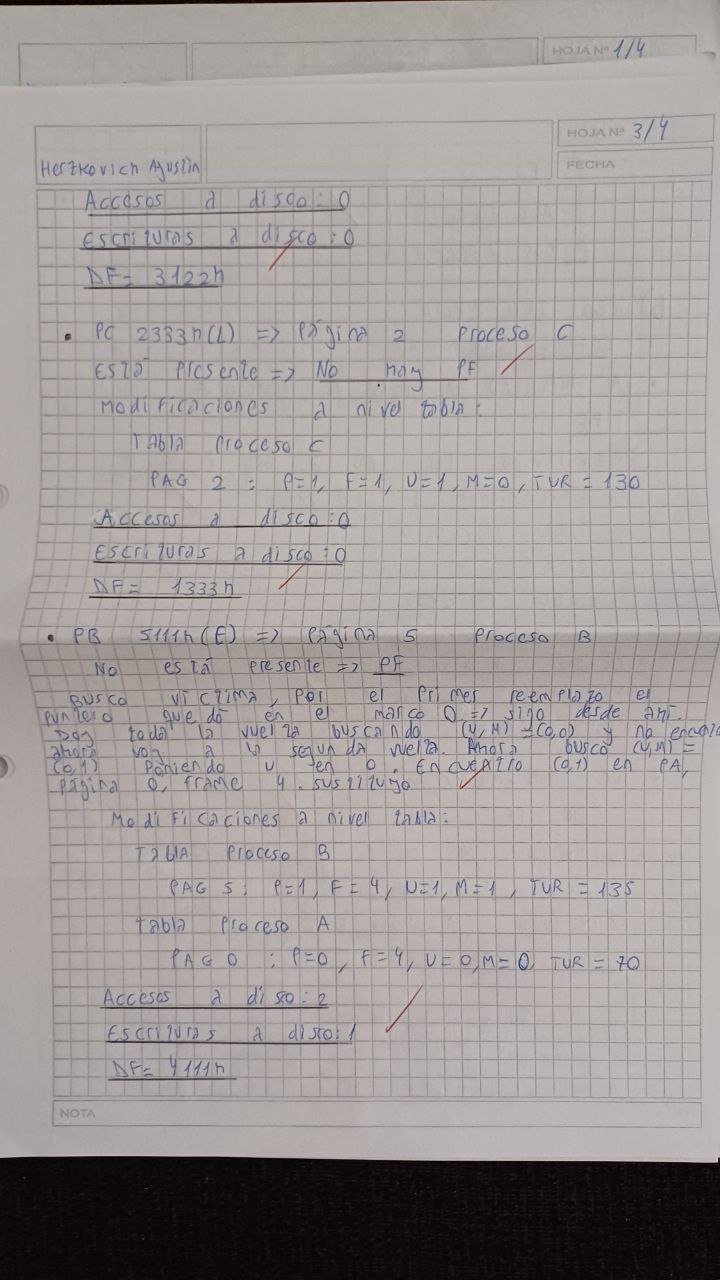 HOJA Nº 1/4
HOJA Nº 3/4
Herzkovich Agustín
FECHA
Accesos a disco: 0
Escrituras a disco: 0
DF= 3122h
• PC 2333h(L) => Página 2 Proceso C
Está presente => No hay PF
Modificaciones a nivel tabla:
Tabla Proceso C
PAG 2 : P=1, F=1, U=1, M=0, TUR = 130
Accesos a disco: 0
Escrituras a disco: 0
DF= 1333h
• PB 5111h(E) => Página 5 Proceso B
No está presente => PF
Busco víctima, por el primer reemplazo el
puntero quedó en el marco 0 => sigo desde ahí.
Doy toda la vuelta buscando (U,M) = (0,0) y no encuentro
ahora voy a la segunda vuelta. Ahora busco (U,M) =
(0,1) poniendo U en 0. Encuentro (0,1) en PA,
página 0, frame 4. sustituyo
Modificaciones a nivel tabla:
Tabla Proceso B
PAG 5: P=1, F=4, U=1, M=1, TUR = 135
Tabla Proceso A
PAG 0 : P=0, F=4, U=0, M=0, TUR = 70
Accesos a disco: 2
Escrituras a disco: 1
DF= 4111h
NOTA